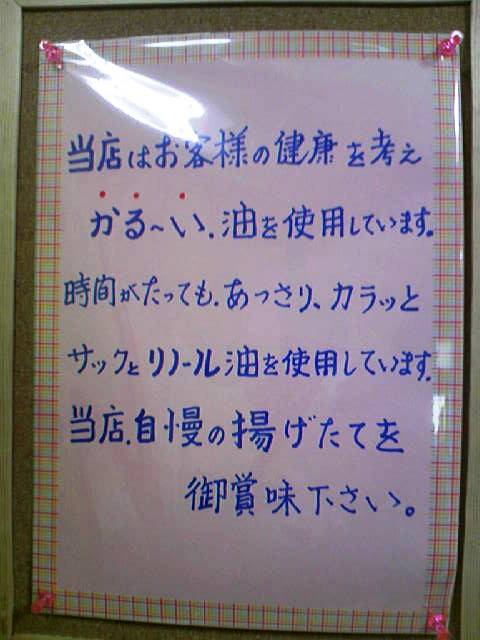 当店はお客様の健康を考え
かる～い.油を使用しています。
時間がたっても.あっさり、カラッと
サックとリノール油を使用しています。
当店.自慢の揚げたてを
御賞味下さい。